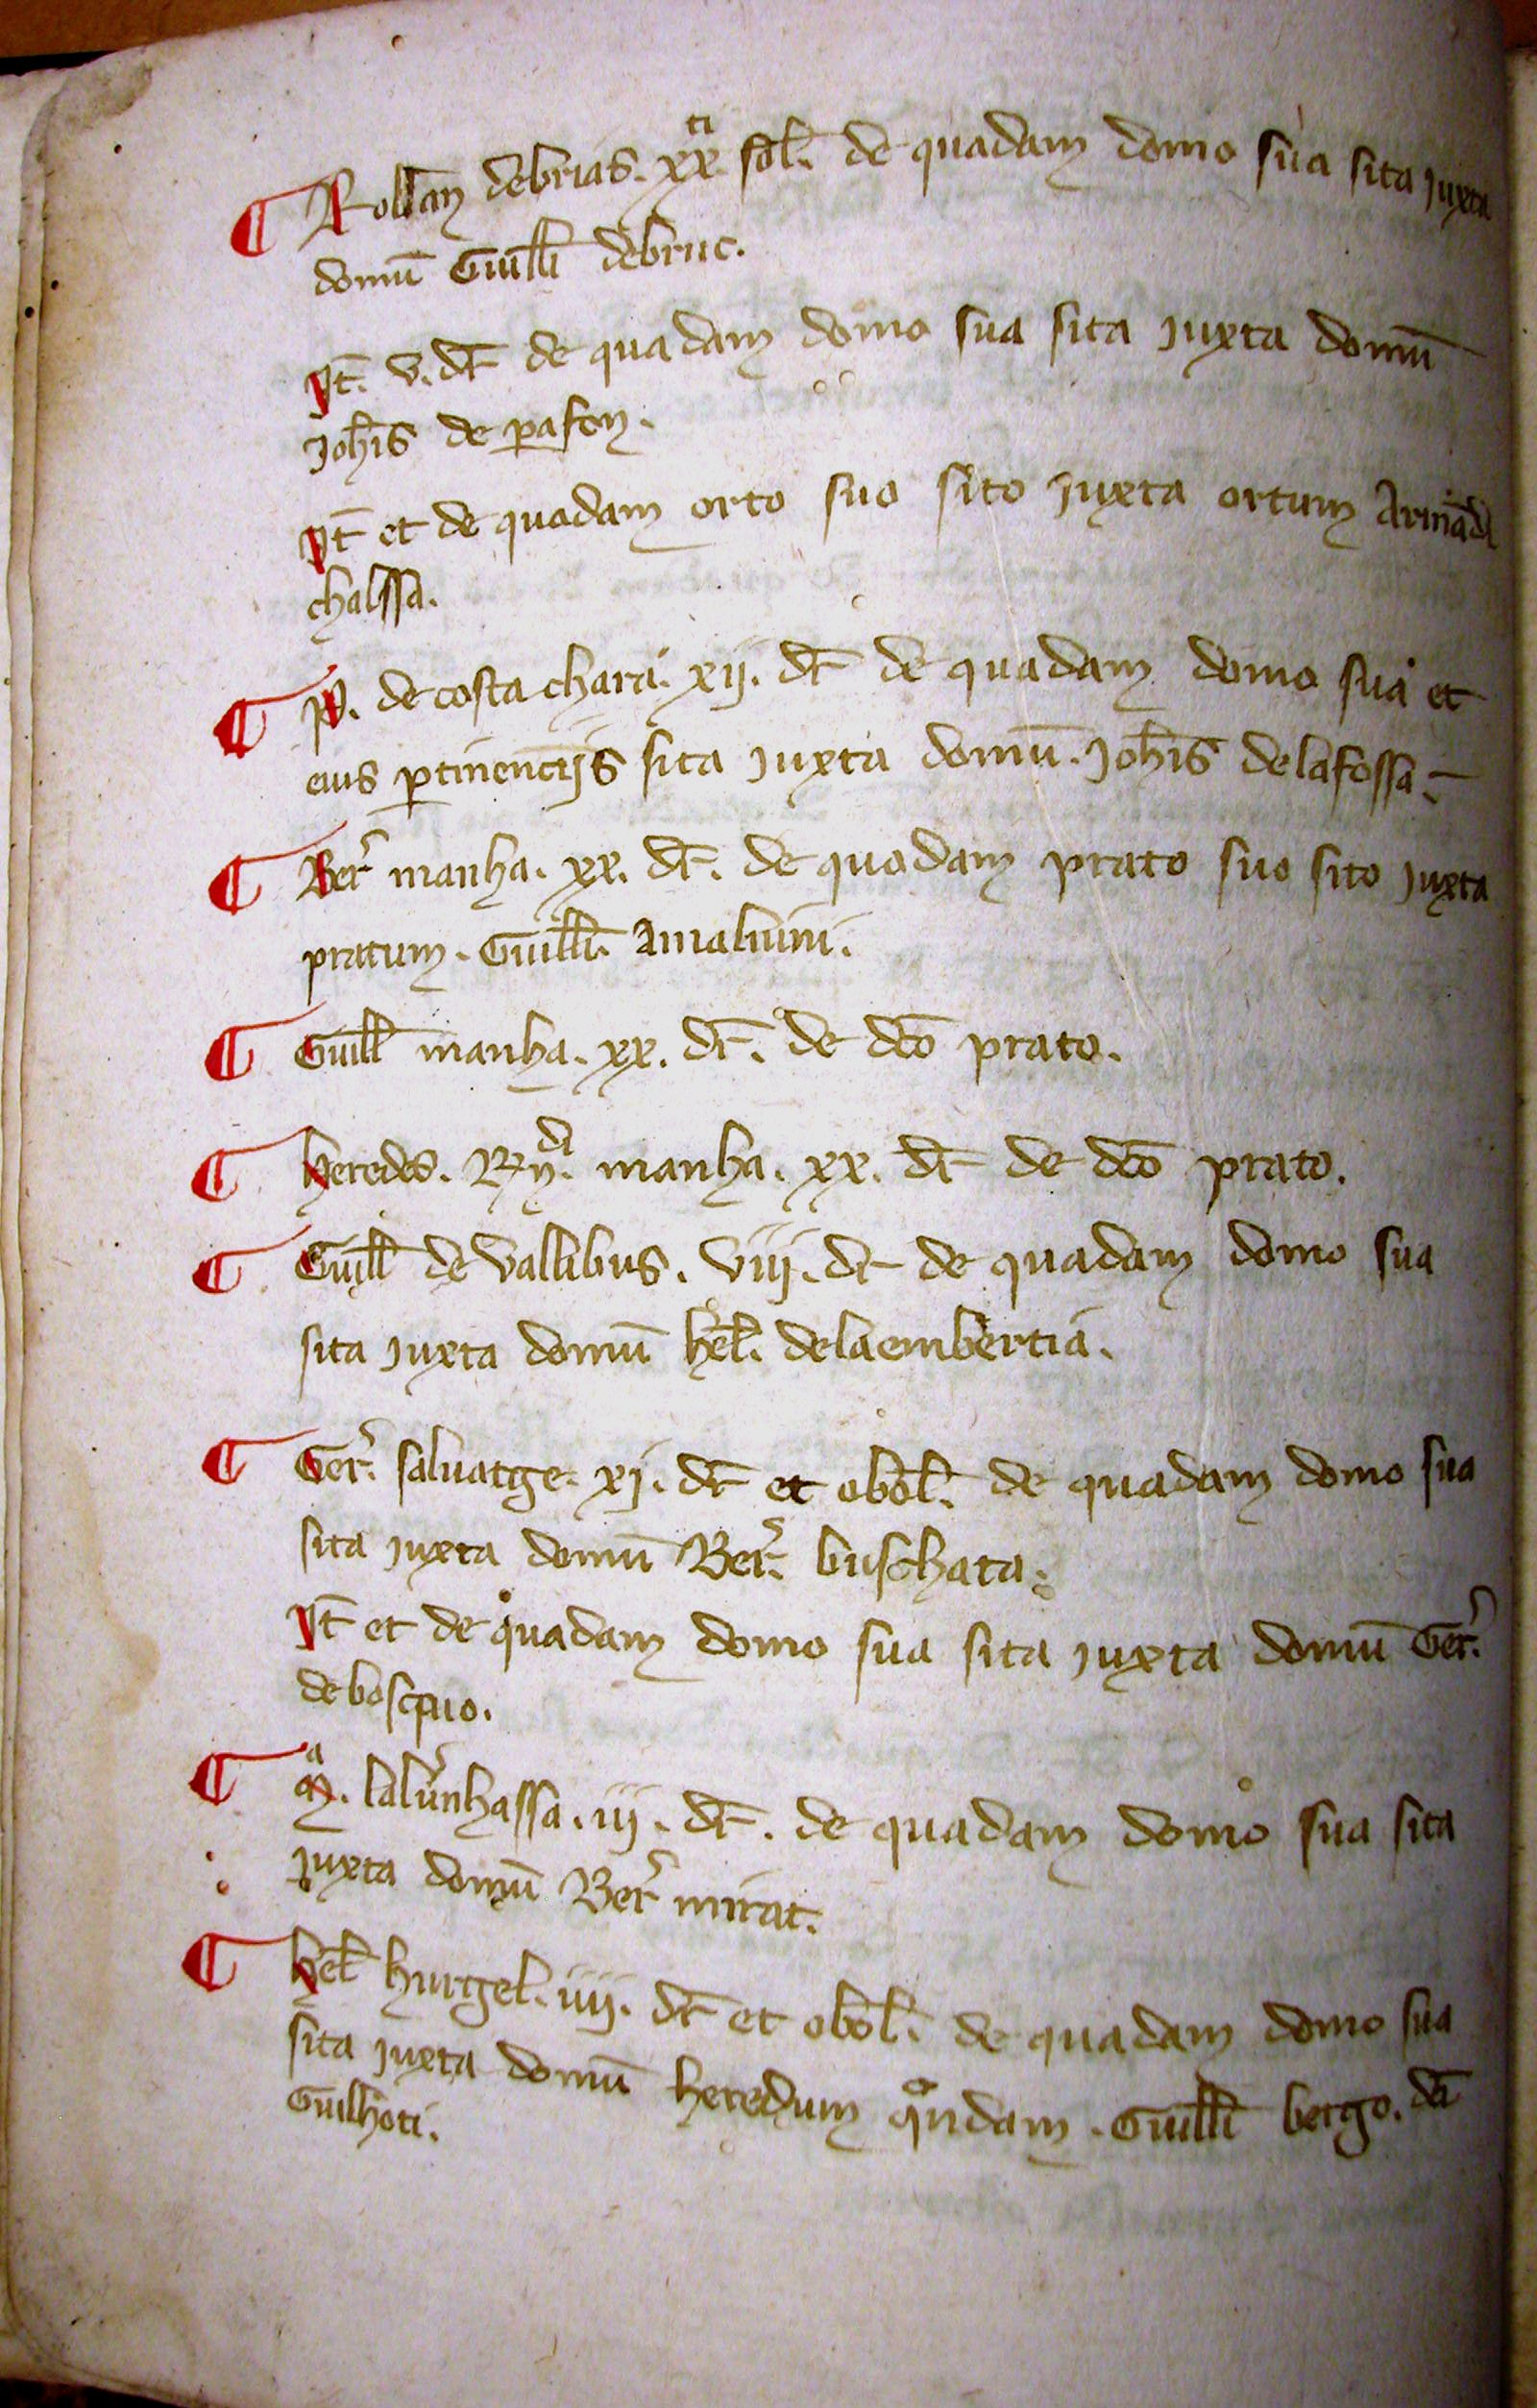 ¶ Rollan̄ debrias. xx.ti sol̄. de quadam domo sua sita juxta
domū Guill̄i debruc.
Jt̄. v. dr̄ de quadam domo sua sita juxta domū
Joh̄is de pafon.
Jt̄ et de quodam orto suo sito juxta ortum Armādi
chalssa.
¶ P. de costa chara. xij. dr̄ de quadam domo sua et
eius ptinencijs sita juxta domū. Joh̄is delafossa.
¶ Ber̄ manha. xx. dr̄. de quodam prato suo sito juxta
pratum. Guill̄i. Amaluini.
¶ Guill̄ manha. xx. dr̄. de dc̄o prato.
¶ heredes. Ry.di manha. xx. dr̄ de dc̄o prato.
¶ Guill̄ de vallibus. viij. dr̄ de quadam domo sua
sita juxta domū hel̄. delaembertia.
¶ Ger̄. saluatge. xj. dr̄ et obol̄. de quadam domo sua
sita juxta domū Ber̄. buschata.
Jt̄ et de quadam domo sua sita juxta domū Ger̄.
de boscpuo.
¶ M.a lalūnhassa. iij. dr̄. de quadam domo sua sita
juxta domū Ber̄ mirat.
¶ hel̄ hurgel. iiij. dr̄ et obol̄. de quadam domo sua
sita juxta domū heredum qͦndam. Guill̄i betgo. dc̄i
Guilhoti.